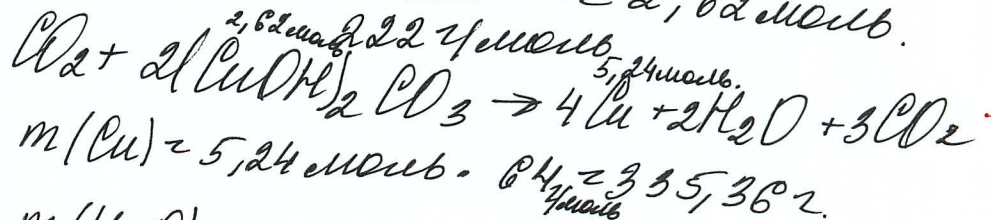 2,62 моль.
2,62 моль 222 г/моль 5,24 моль.
CO2 + 2(CuOH)2CO3 → 4Cu + 2H2O + 3CO2
m(Cu) = 5,24 моль · 64 г/моль = 335,36 г.